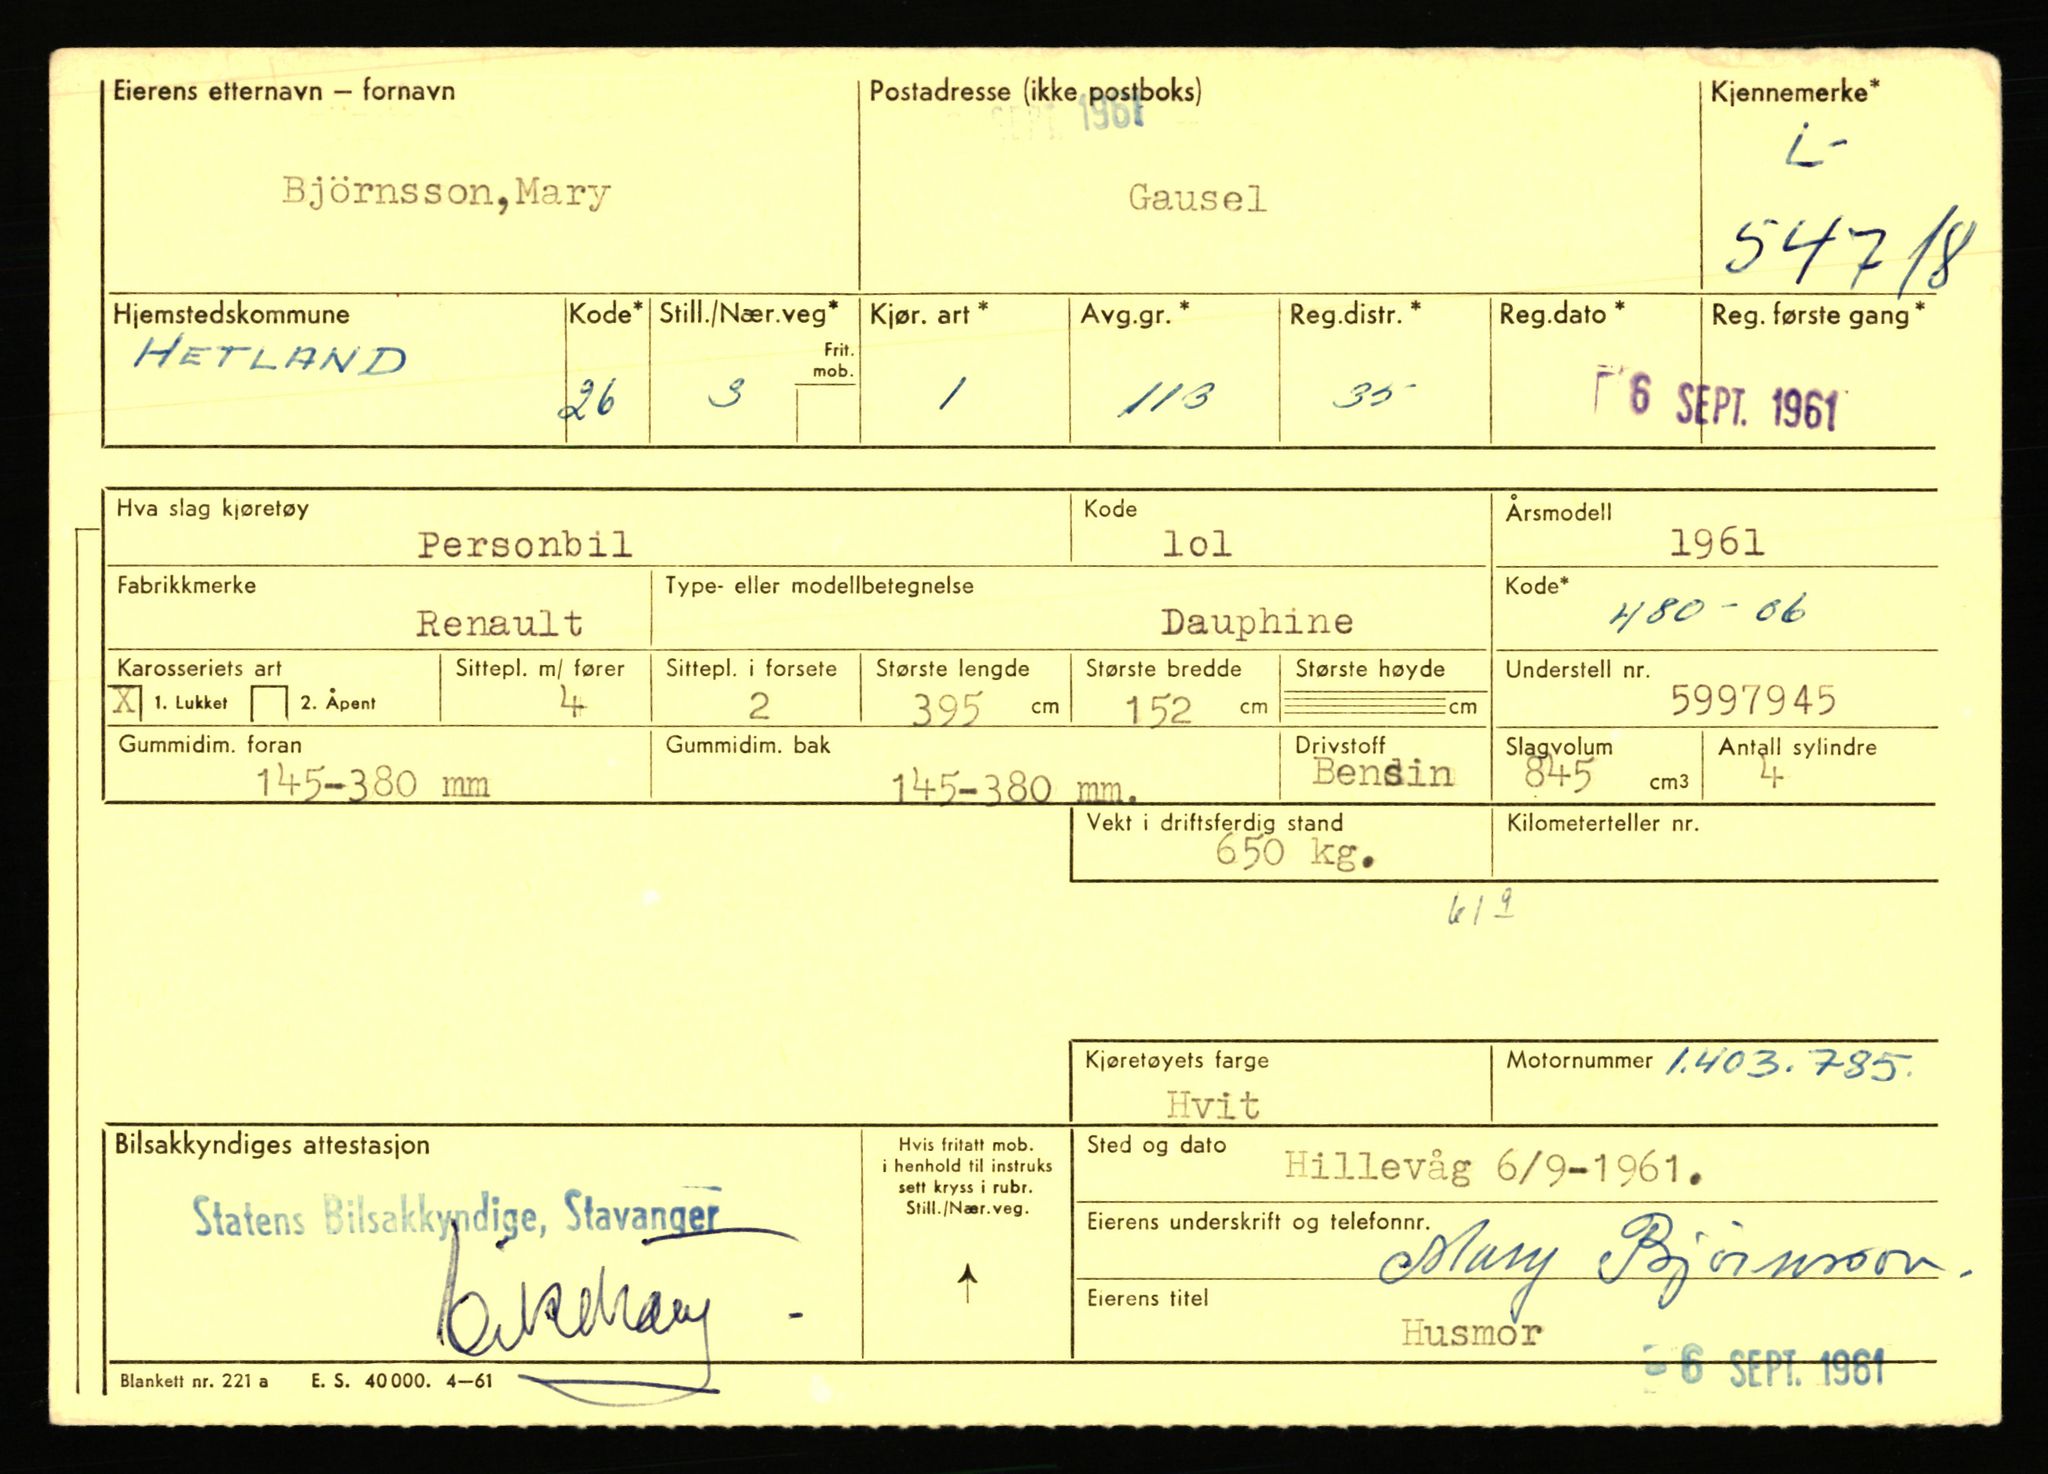 Eierens etternavn – fornavn
Björnsson,Mary
Postadresse (ikke postboks)
SEPT. 1961
Gausel
Kjennemerke*
L-
54718
Hjemstedskommune
HETLAND
Kode*
26
Still./Nær.veg*
3
Frit.
mob.
Kjør. art *
1
Avg.gr. *
113
Reg.distr. *
35
Reg.dato *
Reg. første gang *
6 SEPT. 1961
Hva slag kjøretøy
Personbil
Kode
lol
Årsmodell
1961
Fabrikkmerke
Renault
Type- eller modellbetegnelse
Dauphine
Kode*
480-06
Karosseriets art
X 1. Lukket 2. Åpent
Sittepl. m/ fører
4
Sittepl. i forsete
2
Største lengde
395 cm
Største bredde
152 cm
Største høyde
cm
Understell nr.
5997945
Gummidim. foran
145-380 mm
Gummidim. bak
145-380 mm.
Drivstoff
Bensin
Slagvolum
845 cm3
Antall sylindre
4
Vekt i driftsferdig stand
650 kg.
Kilometerteller nr.
61 9
Kjøretøyets farge
Hvit
Motornummer 1.403.785.
Bilsakkyndiges attestasjon
Statens Bilsakkyndige, Stavanger
Hvis fritatt mob.
i henhold til instruks
sett kryss i rubr.
Still./Nær.veg.
Sted og dato
Hillevåg 6/9-1961.
Eierens underskrift og telefonnr.
Mary Björnsson.
Eierens titel
Husmor
- 6 SEPT. 1961
Blankett nr. 221 a E. S. 40 000. 4–61